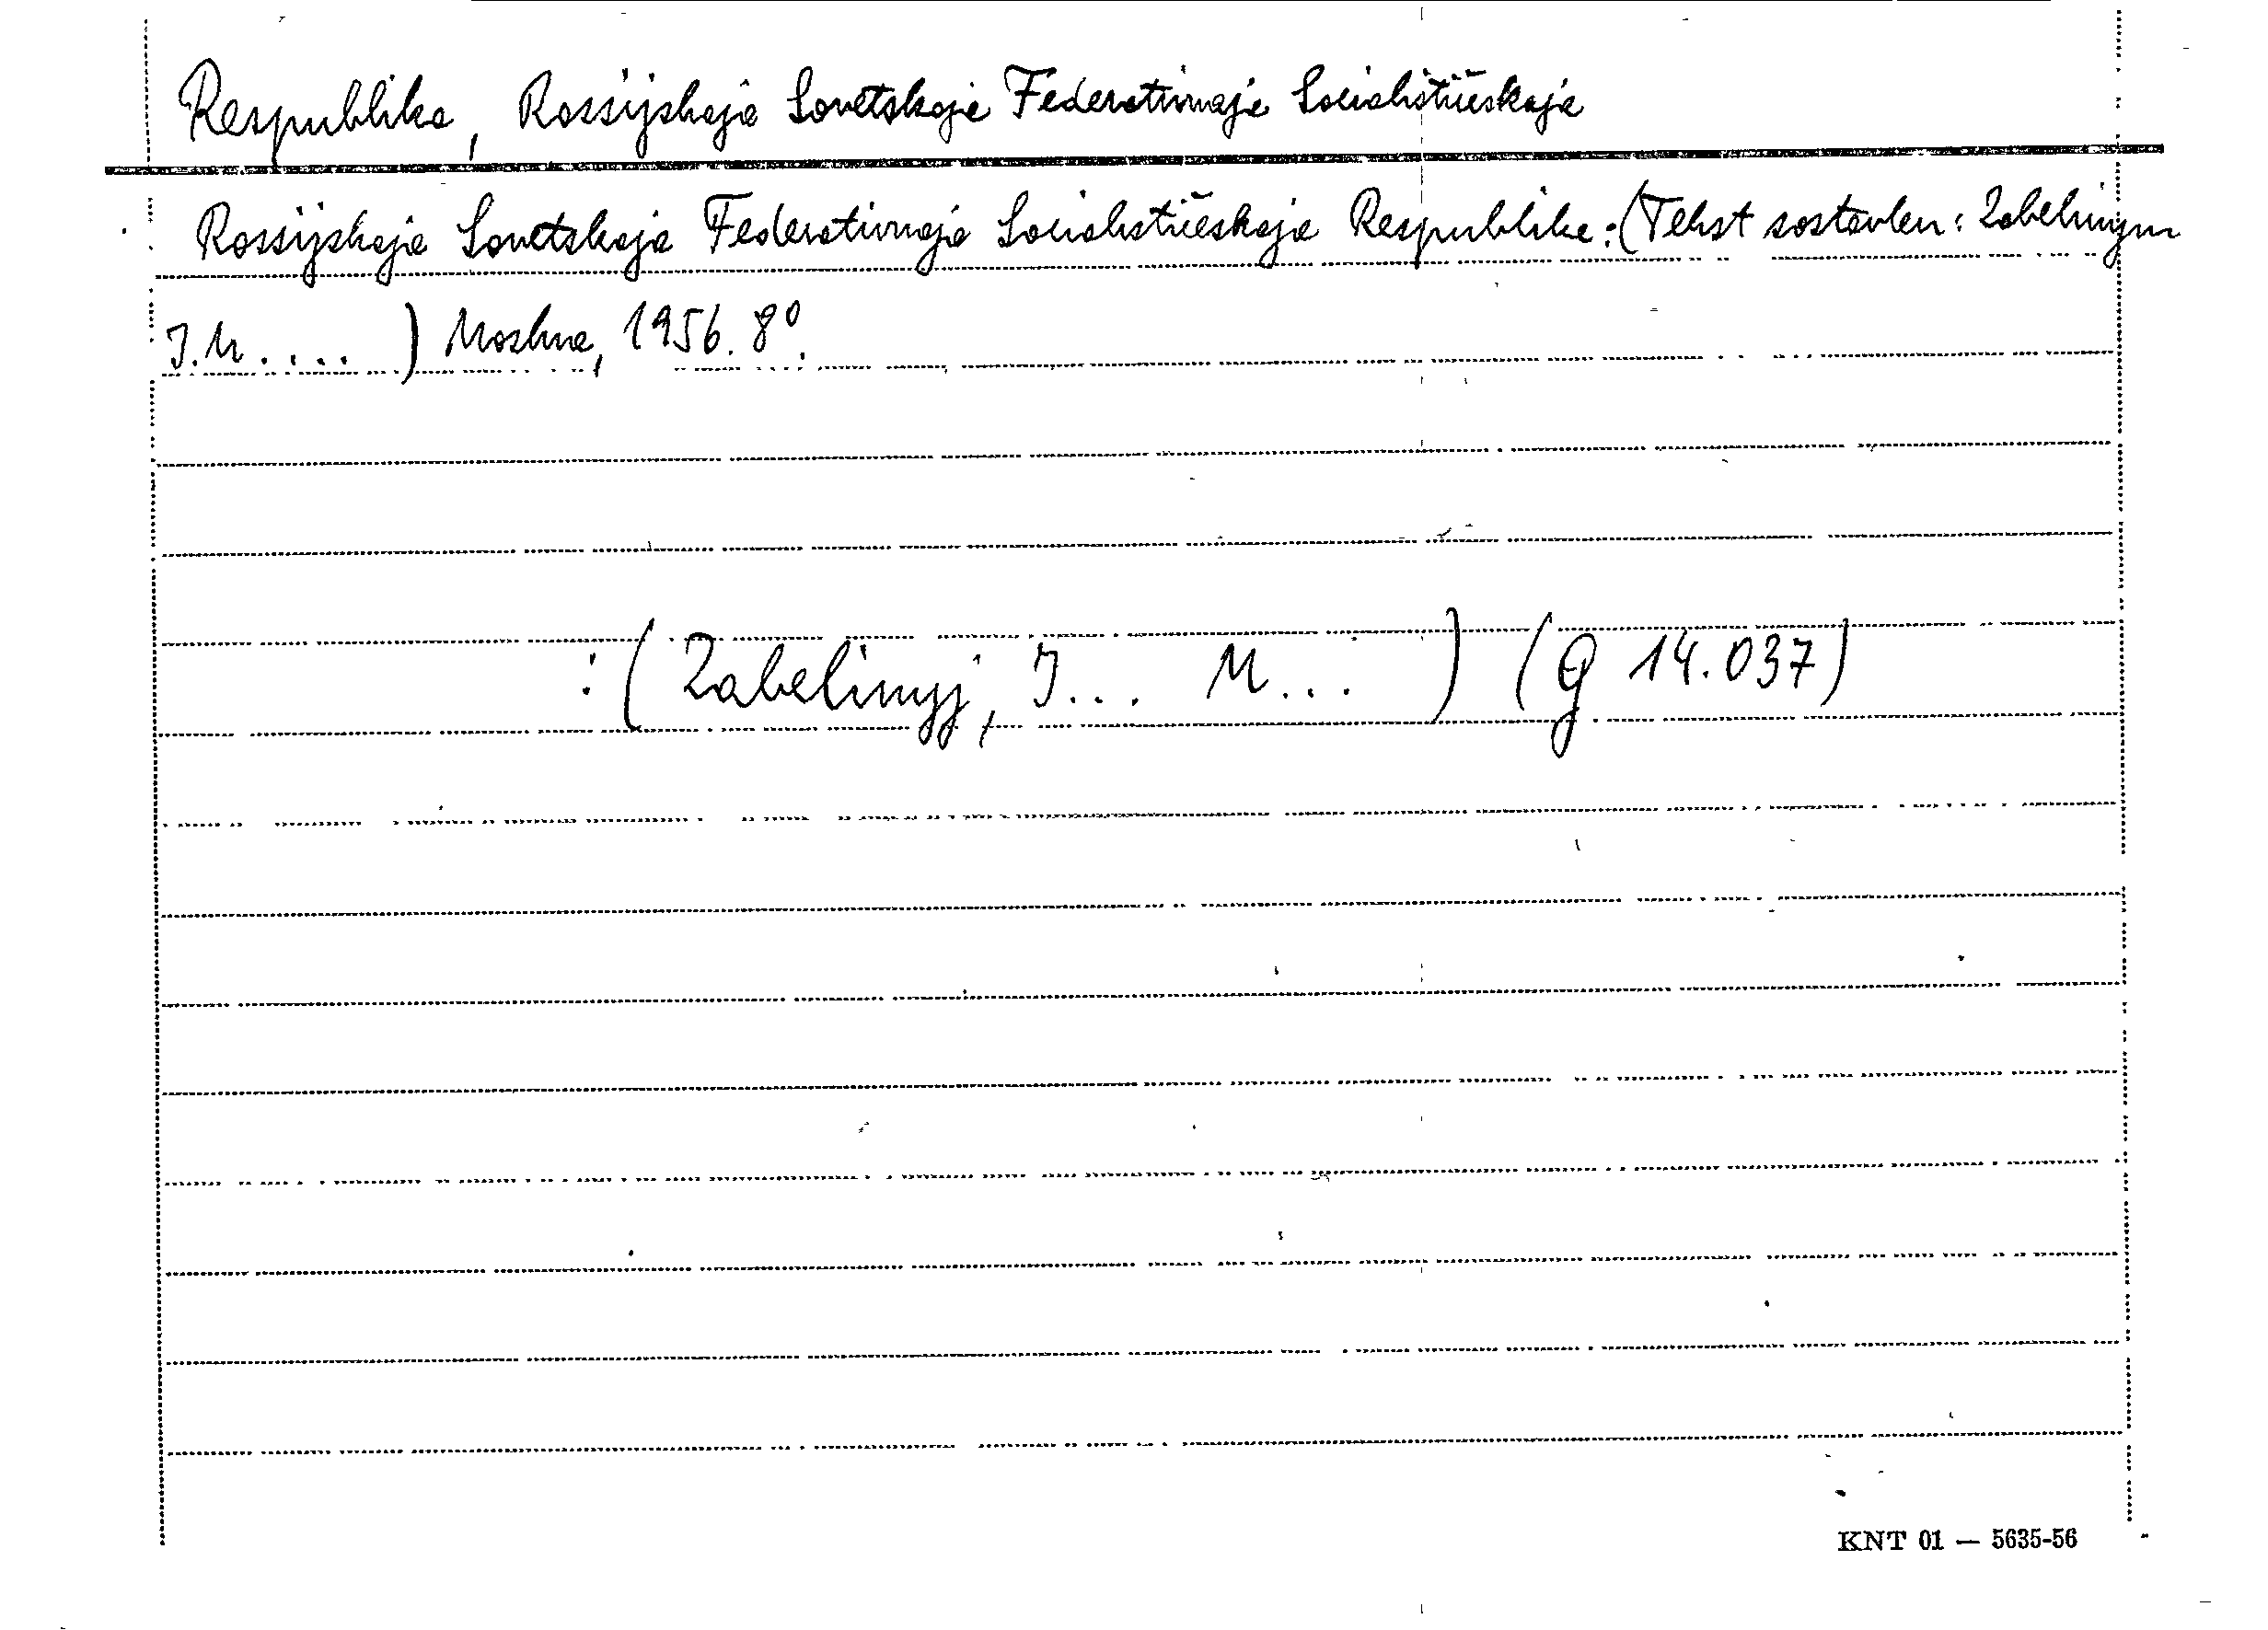 Respublika, Rossijskaja Sovetskaja Federativnaja Socialističeskaja
Rossijskaja Sovetskaja Federativnaja Socialističeskaja Respublika: (Tekst sostavlen: Zabelinym
I. M. . . . ) Moskva, 1956. 8°.
: (Zabelinyj, I... M... ) (G 14.037)
KNT 01 — 5635-56